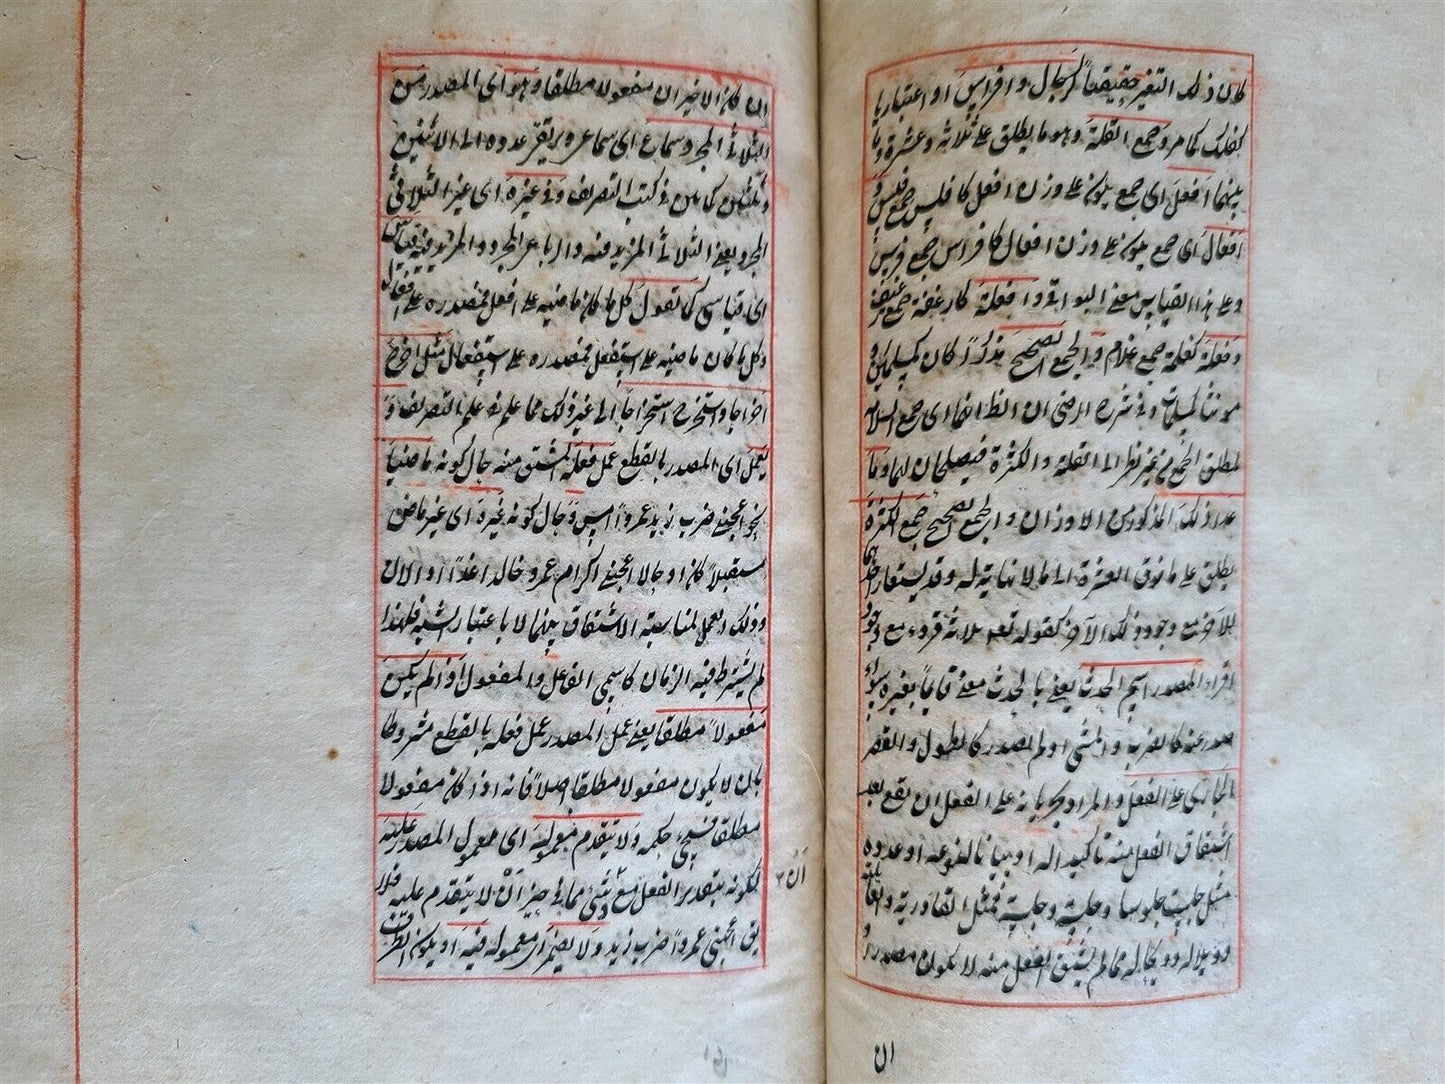 كان ذلك التغير حقيقياً كرجال وافراس او اعتباريا
كفلك كما مر وجمع القلة وهو ما يطلق على ثلاثة وعشرة وما
بينهما افعل اى جمع يكون على وزن افعل كافلس جمع فلس و
افعال اى جمع يكون على وزن افعال كافراس جمع فرس
وعلى هذا القياس معنى البواقى وافعلة كارغفة جمع رغيف
وفعلة كغلمة جمع غلام والجمع الصحيح مذكراً كان كمسلمين و
مونثا كمسلمات وفى شرح الرضى ان الظاهر انهما اى جمعى السلامة
لمطلق الجمع من غير نظر الى القلة والكثرة فيصلحان لهما وما
عدا ذلك المذكور من الاوزان والجمع الصحيح جمع الكثرة
يطلق على ما فوق العشرة الى ما لا نهاية له وقد يستعار احدهما
للآخر مع وجود ذلك الآخر كقوله تعالى ثلاثة قروء مع وجود
اقراء المصدر اسم الحدث يعنى بالحدث معنى قايماً بغيره سواء
صدر عنه كالضرب والمشى او لم يصدر كالطول والقصر
الجارى على الفعل والمراد بجريانه على الفعل ان يقع بعد
اشتقاق الفعل منه تاكيدا له او بيانا لنوعه او عدده
مثل جلست جلوسا وجلسة وجلسة فمثل القادرية والعالمية
وويلا له وويحا له مما لم يشتق الفعل منه لا يكون مصدرا و
ان
ان كان الاخيران مفعولا مطلقا وهو اى المصدر من
الثلاثى المجرد سماع اى سماعى ويرتقى عدده الى الاثنين
وثلثين كما بين فى كتب التصريف وفى غيره اى غير الثلاثى
المجرد يعنى الثلاثى المزيد فيه والرباعى المجرد والمزيد فيه قياس
اى قياسى كما تقول كل ما كان ماضيه على افعل فمصدره على افعال
وكل ما كان ماضيه على استفعل فمصدره على استفعال مثل اخرج
اخراجا واستخرج استخراجا الى غير ذلك مما علم فى علم التصريف و
يعمل اى المصدر بالقطع عمل فعله المشتق منه حال كونه ماضيا
نحو اعجبنى ضرب زيد عمرواً امس وحال كونه غيره اى غير ماض
مستقبلاً كان او حالا اعجبنى اكرام عمرو خالدا غداً او الآن
وذلك العمل لمناسبة الاشتقاق بينهما لا باعتبار الشبه فلهذا
لم يشترط فيه الزمان كاسمى الفاعل والمفعول اذا لم يكن
مفعولاً مطلقا يعنى عمل المصدر عمل فعله بالقطع مشروط
بان لا يكون مفعولا مطلقا اصلاً فانه اذا كان مفعولا
مطلقا فسيجئ حكمه ولا يتقدم معموله اى معمول المصدر عليه
لكونه بتقدير الفعل مع ان وشئ مما فى حيز ان لا يتقدم عليه فلا
يق اعجبنى عمرواً ضرب زيد ولا يضمر اى معموله فيه
ان